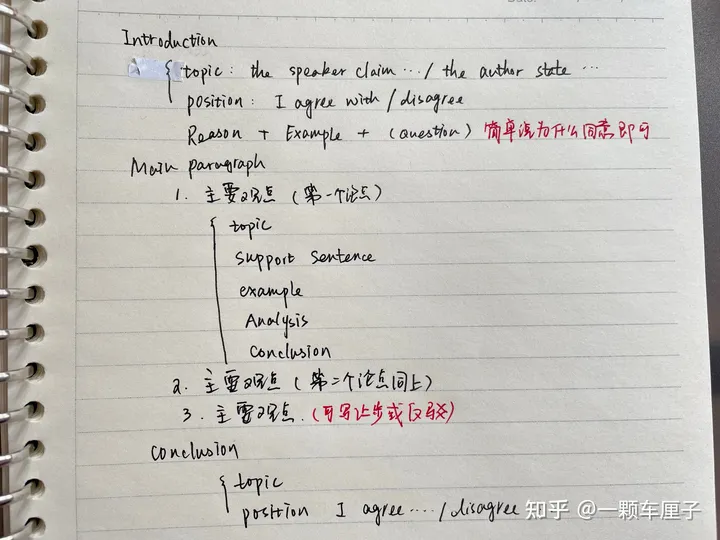 Date:
Introduction
topic : the speaker claim .../ the author state ...
position : I agree with / disagree
Reason + Example + (question) 简单说为什么同意即可
Main paragraph
1. 主要观点 (第一个论点)
topic
support sentence
example
Analysis
Conclusion
2. 主要观点 (第二个论点同上)
3. 主要观点. (可写让步或反驳)
Conclusion
topic
position I agree ..../disagree
知乎 @一颗车厘子